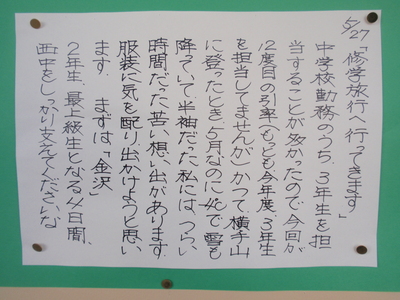 5/27「修学旅行へ行ってきます」
中学校勤務のうち、3年生を担
当することが多かったので、今回が
12度目の引率（もっとも今年度、3年生
を担当してませんが）かつて、横手山
に登ったとき、5月なのに4℃で雪も
降っていて半袖だった私には、つらい
時間だった苦い想い出があります。
服装に気を配り出かけようと思い
ます。まずは「金沢」
2年生、最上級生となる4日間、
西中をしっかり支えてくださいな